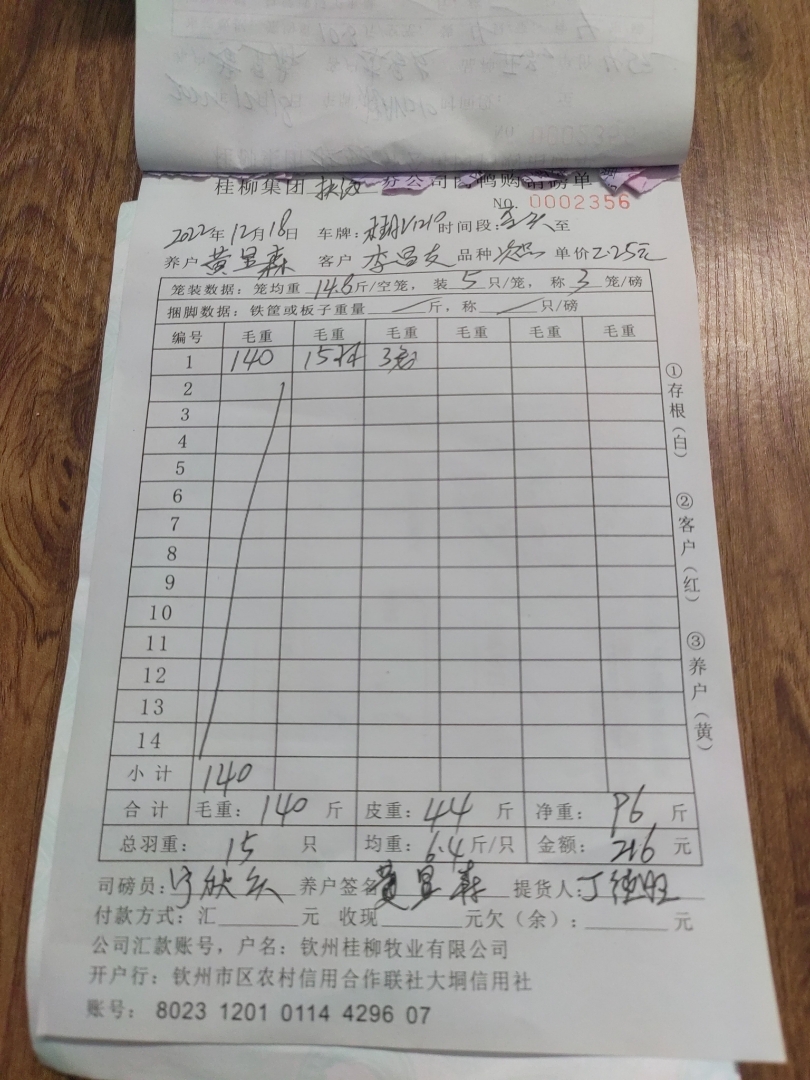 桂柳集团 分公司肉鸭购销磅单
No. 0002356
2022年12月18日 车牌: 时间段: 至
养户 黄显森 客户 李昌友 品种 次品 单价2.25元
笼装数据: 笼均重 14.6斤/空笼, 装 5 只/笼, 称 3 笼/磅
捆脚数据: 铁筐或板子重量 斤, 称 只/磅
编号 毛重 毛重 毛重 毛重 毛重 毛重
1 140 15只 3笼
2
3
4
5
6
7
8
9
10
11
12
13
14
小 计 140
合 计 毛重: 140 斤 皮重: 44 斤 净重: 96 斤
总羽重: 15 只 均重: 6.4斤/只 金额: 216 元
司磅员: 养户签名 黄显森 提货人:
付款方式: 汇 元 收现 元欠(余): 元
公司汇款账号, 户名: 钦州桂柳牧业有限公司
开户行: 钦州市区农村信用合作联社大垌信用社
账号: 8023 1201 0114 4296 07
①存根(白) ②客户(红) ③养户(黄)